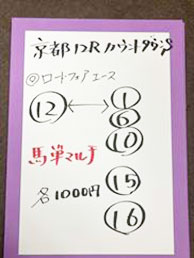 京都12R カウントダウンS
◎ロードフォアエース
⑫ ↔ ①
⑥
⑩
馬単マルチ
⑮
各1000円
⑯